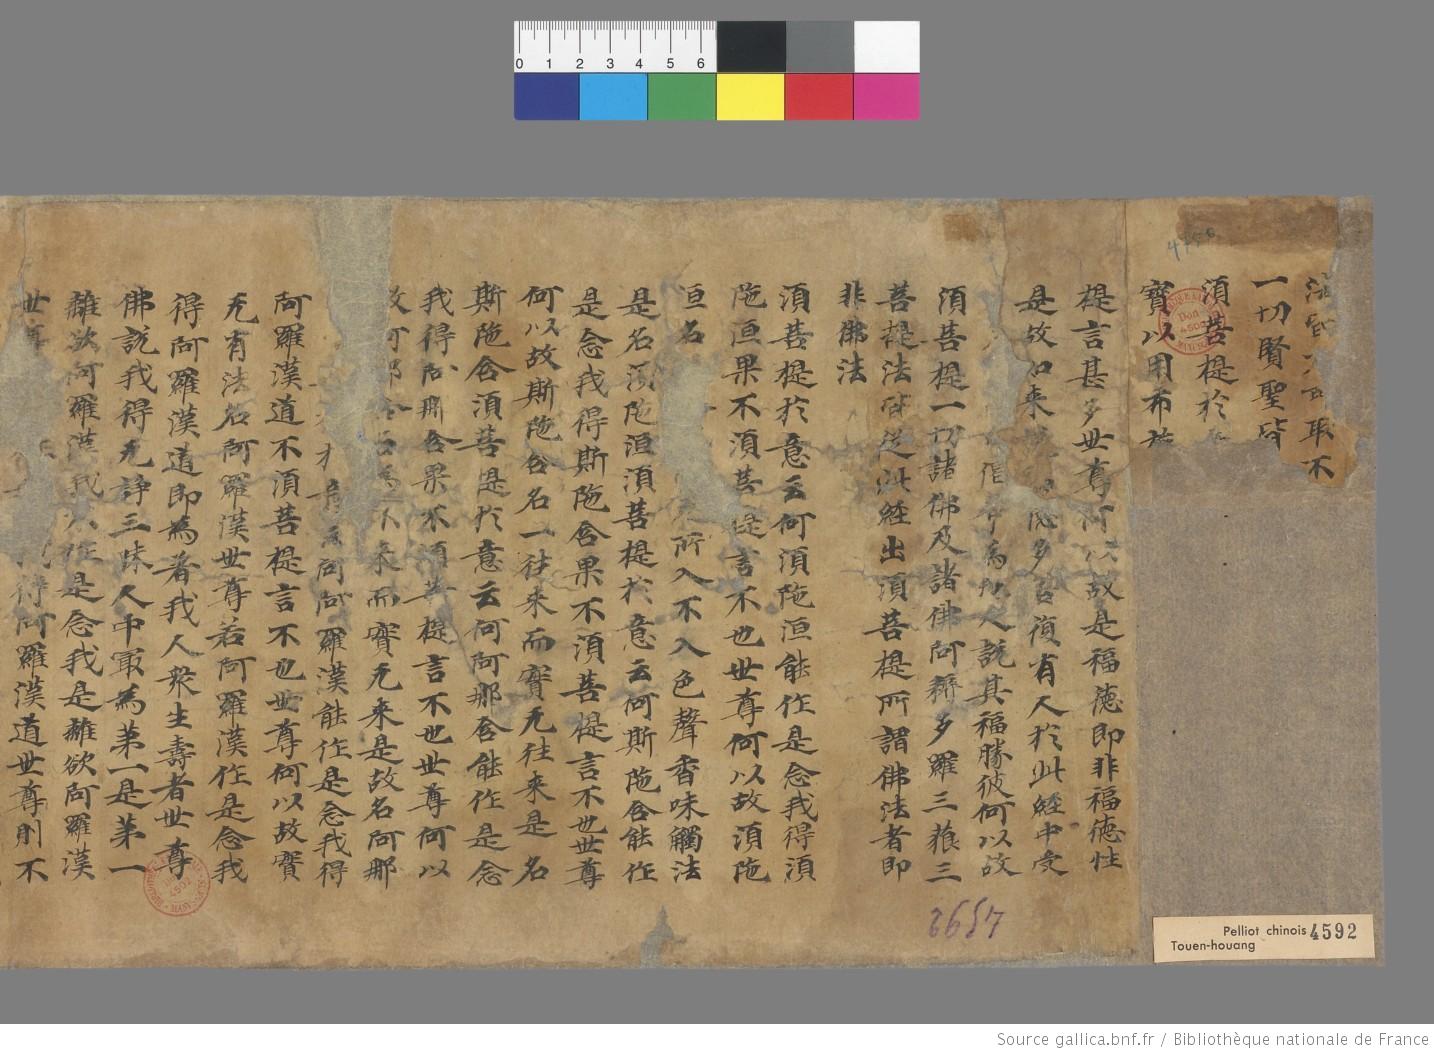 0 1 2 3 4 5 6
法皆不可取不
一切賢聖皆
須菩提於
寶以用布施
提言甚多世尊何以故是福德即非福德性
是故如来說福德多若復有人於此經中受
為他人說其福勝彼何以故
須菩提一切諸佛及諸佛阿耨多羅三藐三
菩提法皆從此經出須菩提所謂佛法者即
非佛法
須菩提於意云何須陁洹能作是念我得須
陁洹果不須菩提言不也世尊何以故須陁
洹名 所入不入色聲香味觸法
是名須陁洹須菩提於意云何斯陁含能作
是念我得斯陁含果不須菩提言不也世尊
何以故斯陁含名一往来而實无往来是名
斯陁含須菩提於意云何阿那含能作是念
我得阿那含果不須菩提言不也世尊何以
故阿那含名為不来而實无来是故名阿那
意云何阿羅漢能作是念我得
阿羅漢道不須菩提言不也世尊何以故實
无有法名阿羅漢世尊若阿羅漢作是念我
得阿羅漢道即為著我人衆生壽者世尊
佛說我得无諍三昧人中冣為第一是第一
離欲阿羅漢我不作是念我是離欲阿羅漢
世尊我 得阿羅漢道世尊則不
8657
Pelliot chinois 4592
Touen-houang
Source gallica.bnf.fr / Bibliothèque nationale de France